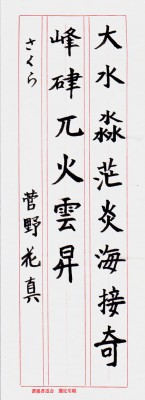 大水淼茫炎海接奇
峰硉兀火雲昇
さくら 菅野花真